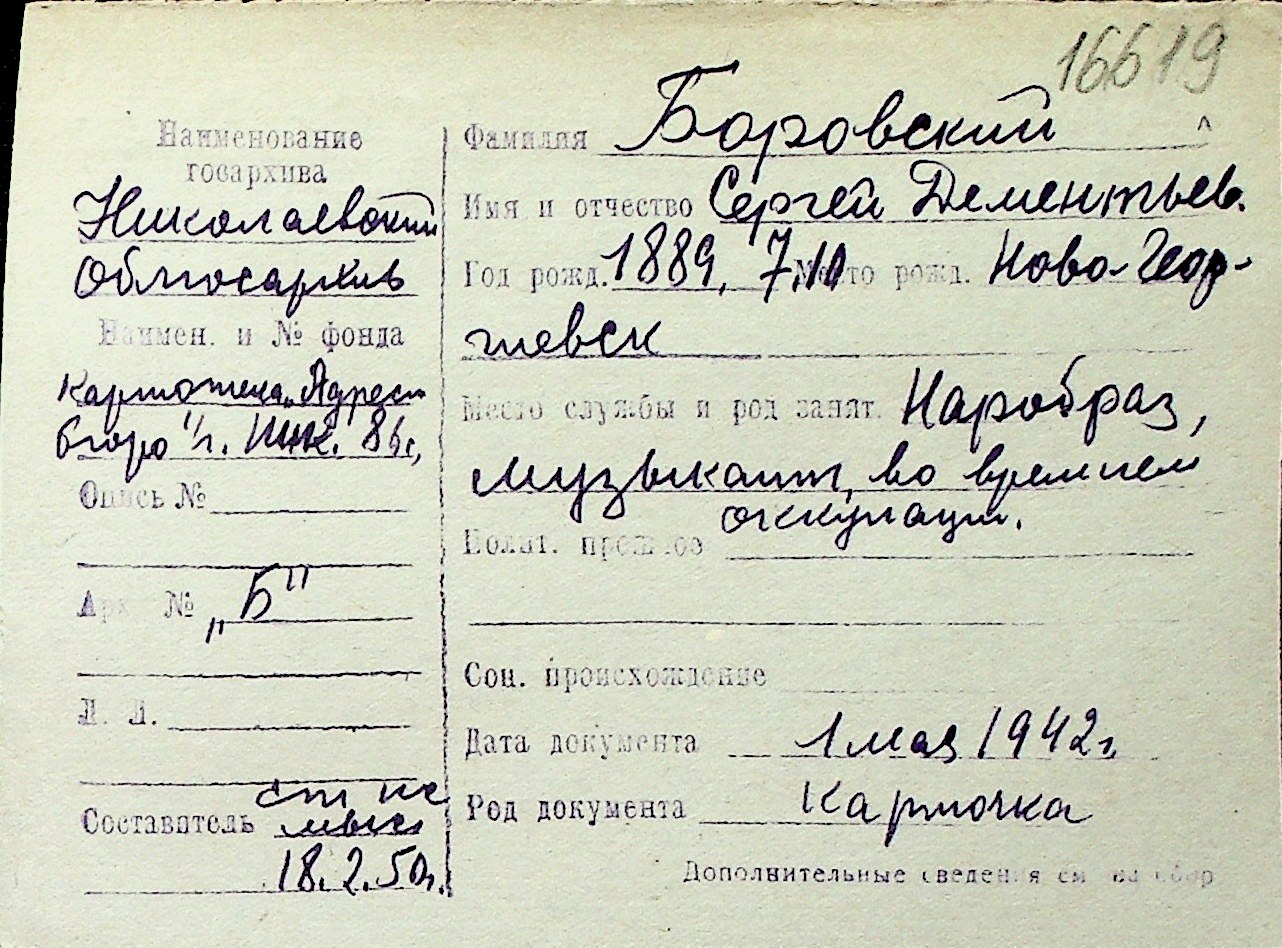 16619
Наименование
госархива
Николаевский
Облгосархив
Наимен. и № фонда
Картотека „Адресн
бюро" г. Ник.
Опись №
Арх №
„Б"
Л. Л.
Составитель
18.2.50г.
Фамилия Боровский
Имя и отчество Сергей Дементьев.
Год рожд. 1889, 7.10 Место рожд. Ново-Геор-
гиевск
Место службы и род занят. Наробраз,
музыкант, во времнем
оккупации.
Полит. прошлое
Соц. происхождение
Дата документа 1 мая 1942 г.
Род документа Карточка
Дополнительные сведения см на обор